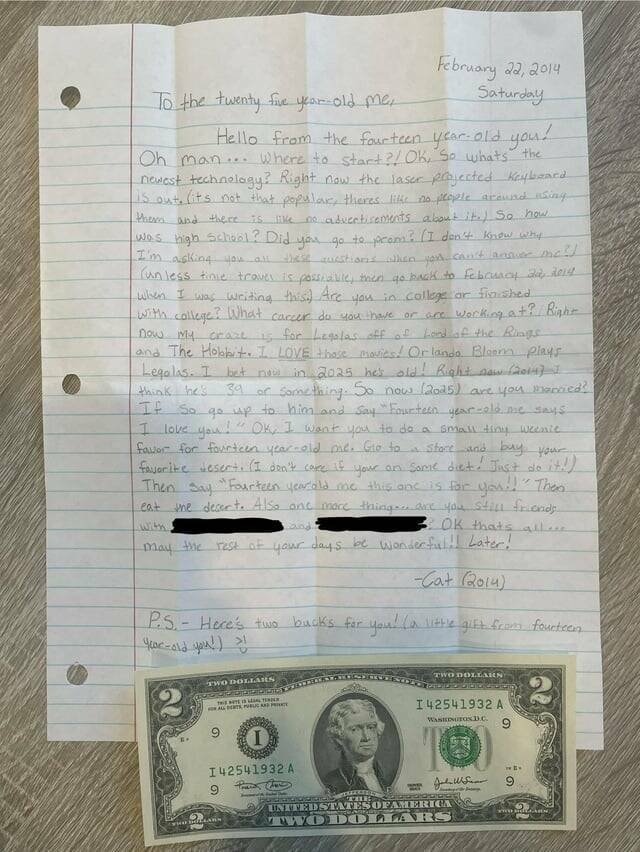 February 22, 2014
Saturday
To the twenty five year-old me,
Hello from the fourteen year-old you!
Oh man... Where to start?! OK, So whats the
newest technology? Right now the laser projected keyboard
is out, (its not that popular, theres like no people around using
them and there is like no advertisements about it.) So how
was high school? Did you go to prom? (I don't know why
I'm asking you all these questions when you can't answer me?)
(unless time travel is possiable, then go back to February 22, 2014
when I was writing this) Are you in college or finished
with college? What career do you have or are working at? Right
now my craze is for Legolas off of Lord of the Rings
and The Hobbit. I LOVE those movies! Orlando Bloom plays
Legolas. I bet now in 2025 he's old! Right now (2014) I
think he's 39 or something. So now (2025) are you married?
If so go up to him and say "Fourteen year-old me says
I love you!" OK, I want you to do a small tiny weenie
favor for fourteen year-old me. Go to a store and buy your
favorite desert. (I don't care if your on some diet! Just do it!)
Then say "Fourteen year old me this one is for you!!" Then
eat the desert. Also one more thing... are you still friends
with and ? OK thats all...
may the rest of your days be wonderful!! Later!
-Cat (2014)
P.S. - Here's two bucks for you! (a little gift from fourteen
year-old you!) >!
TWO DOLLARS FEDERAL RESERVE NOTE TWO DOLLARS
2 2
THIS NOTE IS LEGAL TENDER
FOR ALL DEBTS, PUBLIC AND PRIVATE
I 42541932 A
WASHINGTON, D.C.
9 9
I
TWO
I 42541932 A
9 9
JEFFERSON
THE
UNITED STATES OF AMERICA
2 TWO DOLLARS 2